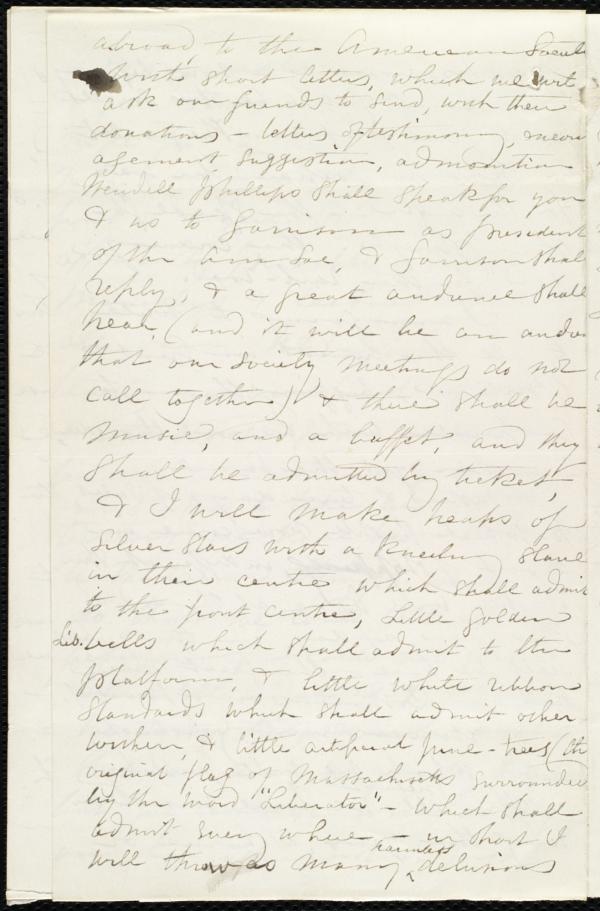 abroad, to the American Societ
with short letters, which we wil
ask our friends to send, with their
donations – letters of testimony, encour
agement, suggestion, admonition
Wendell Phillips shall speak for you
& us to Garrison as president
of the Am Soc, & Garrison shal
reply, & a great audience shall
hear, (and it will be an audie
that our society meetings do not
call together) & there shall be
music, and a buffet, and they
shall be admitted by ticket,
& I will make heaps of
silver stars with a kneeling slave
in their centre which shall admit
to the front centre, little golden
Lib. bells which shall admit to the
platform, & little white ribbon
standards which shall admit other
where, & little artificial pine-trees (the
original flag of Massachusetts surrounded
by the word "Liberator" – which shall
admit every where – in short I
will throw as many harmless delusions